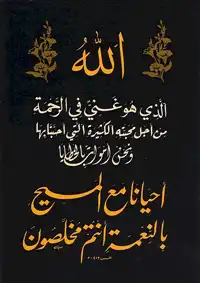 الله
الذي هو غني في الرحمة
من أجل محبته الكثيرة التي أحبنا بها
ونحن أموات بالخطايا
أحيانا مع المسيح
بالنعمة أنتم مخلصون